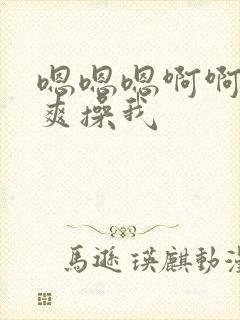 嗯嗯嗯啊啊
爽操我
馬遜瑛麒動漫